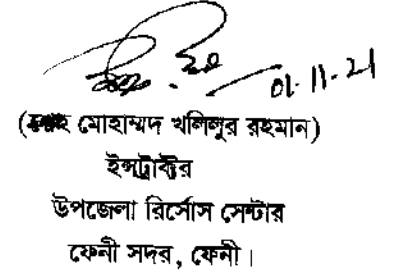 01-11-21
(মোহাম্মদ খলিলুর রহমান)
ইন্সট্রাক্টর
উপজেলা রির্সোস সেন্টার
ফেনী সদর, ফেনী।